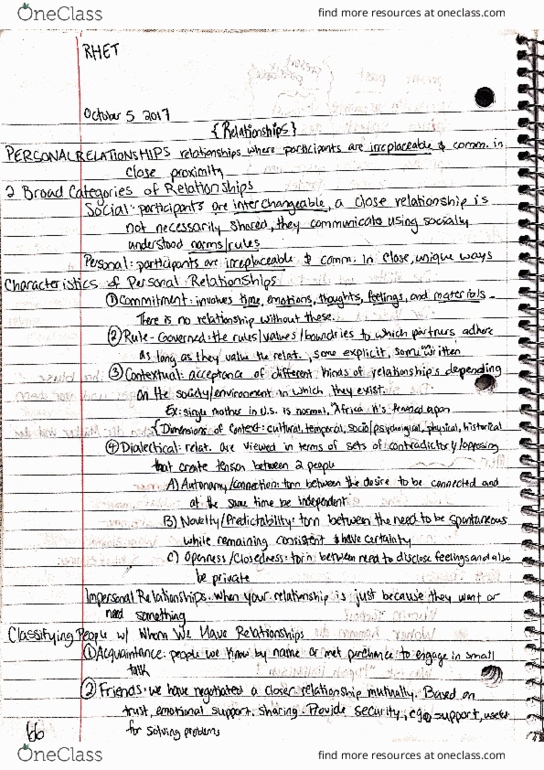 OneClass
find more resources at oneclass.com
RHET
October 5 2017
{Relationships}
PERSONAL RELATIONSHIPS relationships where participants are irreplaceable & comm. in
close proximity
2 Broad Categories of Relationships
Social: participants are interchangeable, a close relationship is
not necessarily shared, they communicate using socially
understood norms/rules
Personal: participants are irreplaceable & comm. in close, unique ways
Characteristics of Personal Relationships
① Commitment: involves time, emotions, thoughts, feelings, and materials.
There is no relationship without these.
② Rule-Governed: the rules/values/boundries to which partners adhere
as long as they value the relat., some explicit, some written
③ Contextual: acceptance of different kinds of relationships depending
on the society/environment in which they exist.
Ex: single mother in U.S. is normal, Africa it's frowned upon
{Dimensions of Context: cultural, temporal, social/psychological, physical, historical
④ Dialectical: relat. are viewed in terms of sets of contradictory/opposing
that create tension between 2 people
A) Autonomy/connection: torn between the desire to be connected and
at the same time be independent
B) Novelty/Predictability: torn between the need to be spontaneous
while remaining consistent & have certainty
C) Openness/Closedness: torn between need to disclose feelings and also
be private
Impersonal Relationships: when your relationship is just because they want or
need something
Classifying People w/ Whom We Have Relationships
① Acquaintance: people we know by name or met perchance to engage in small
talk
② Friends: we have negotiated a closer relationship mutually. Based on
trust, emotional support, sharing. Provide security, ego support,
for solving problems
OneClass
find more resources at oneclass.com